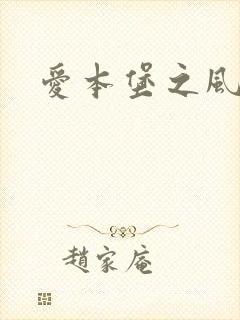 愛本堡之風
趙家庵